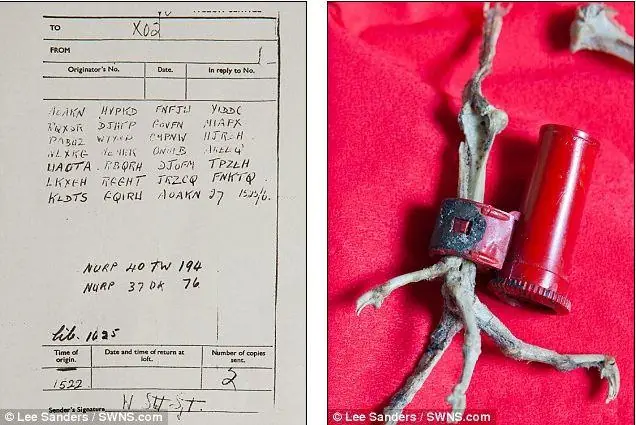 TO X02
FROM
Originator's No. Date. In reply to No.
AOAKN HVPKD FNFJU YIDDC
RQXSR DJHFP GOVFN MIAPX
PABUZ WYYNP CMPNW HJRZH
NLXKG MEMKK ONOIB AKEEQ
UAOTA RBQRH DJOFM TPZEH
LKXGH RGGHT JRZCQ FNKTQ
KLDTS FQIRU AOAKN 27 1525/6.
NURP 40 TW 194
NURP 37 DK 76
lib. 1625
Time of origin. Date and time of return at loft. Number of copies sent.
1522 2
Sender's Signature
© Lee Sanders / SWNS.com
© Lee Sanders / SWNS.com